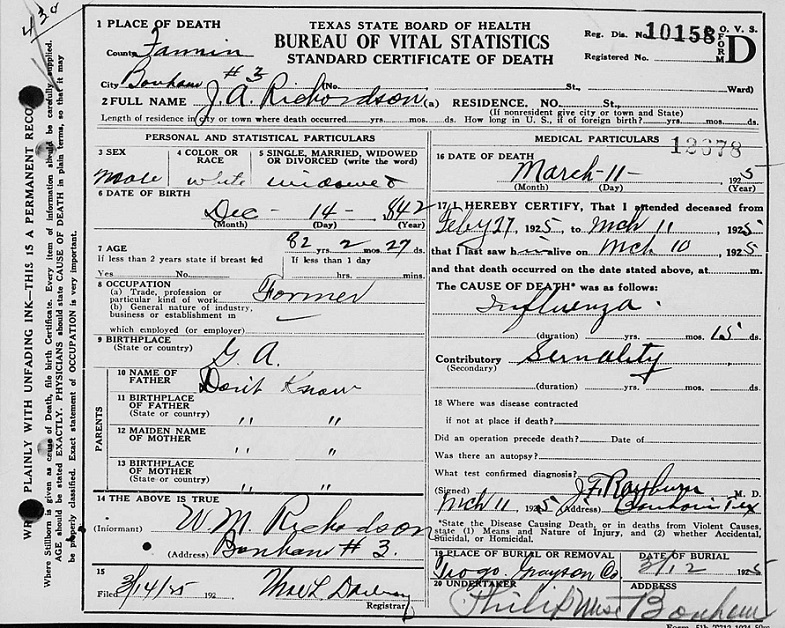 430
1 PLACE OF DEATH
TEXAS STATE BOARD OF HEALTH
BUREAU OF VITAL STATISTICS
STANDARD CERTIFICATE OF DEATH
Reg. Dis. No. 10158
Registered No.
O. V. S.
FORM D
County Fannin
City Bonham #3 (No. St., Ward)
2 FULL NAME J. A. Richardson (a) RESIDENCE. NO. St.,
(If nonresident give city or town and State)
Length of residence in city or town where death occurred yrs. mos. ds. How long in U. S., if of foreign birth? yrs. mos. ds.
PERSONAL AND STATISTICAL PARTICULARS
3 SEX
4 COLOR OR RACE
5 SINGLE, MARRIED, WIDOWED OR DIVORCED (write the word)
male white widowed
6 DATE OF BIRTH
Dec - 14 - 842
(Month) (Day) (Year)
7 AGE
82 yrs. 2 mos. 27 ds.
If less than 2 years state if breast fed
If less than 1 day
Yes No. hrs. mins.
8 OCCUPATION
(a) Trade, profession or particular kind of work Farmer
(b) General nature of industry, business or establishment in
which employed (or employer)
9 BIRTHPLACE
(State or country) G A.
PARENTS
10 NAME OF FATHER Don't Know
11 BIRTHPLACE OF FATHER
(State or country) " "
12 MAIDEN NAME OF MOTHER " "
13 BIRTHPLACE OF MOTHER
(State or country) " "
14 THE ABOVE IS TRUE
(Informant) W. M. Richardson
(Address) Bonham # 3.
15
Filed 3/14/25 192
Registrar
MEDICAL PARTICULARS
12678
16 DATE OF DEATH
March - 11 - , 1925
(Month) (Day) (Year)
17 I HEREBY CERTIFY, That I attended deceased from
Feby 27, 1925, to Mch 11, 1925
that I last saw him alive on Mch. 10, 1925
and that death occurred on the date stated above, at m.
The CAUSE OF DEATH* was as follows:
Influenza.
(duration) yrs. mos. 15 ds.
Contributory Senality
(Secondary)
(duration) yrs. mos. ds.
18 Where was disease contracted
if not at place of death?
Did an operation precede death? Date of
Was there an autopsy?
What test confirmed diagnosis?
(Signed) J. F. Rayburn M. D.
Mch 11, 1925 (Address) Bonham Tex
*State the Disease Causing Death, or in deaths from Violent Causes,
state (1) Means and Nature of Injury, and (2) whether Accidental,
Suicidal, or Homicidal.
19 PLACE OF BURIAL OR REMOVAL
DATE OF BURIAL
Grayson Co 3/12 1925
20 UNDERTAKER
ADDRESS
Bonham
PLAINLY WITH UNFADING INK—THIS IS A PERMANENT RECO
Where Stillborn is given as cause of Death, file birth Certificate. Every item of information should be carefully supplied.
AGE should be stated EXACTLY. PHYSICIANS should state CAUSE OF DEATH in plain terms, so that it may
be properly classified. Exact statement of OCCUPATION is very important.